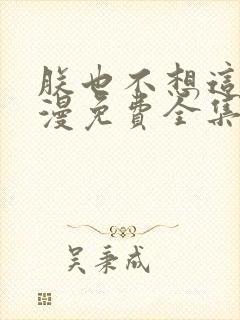 朕也不想這
漫免費全集
吳秉成